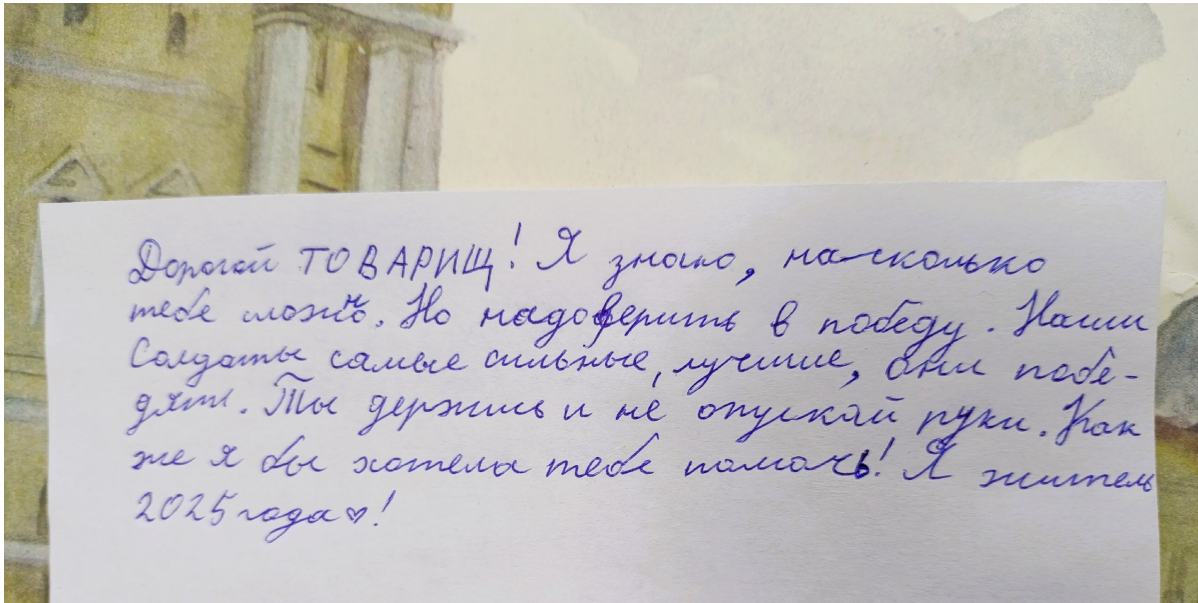 Дорогой ТОВАРИЩ! Я знаю, на-сколько
тебе сложно. Но надо верить в победу. Наши
солдаты самые сильные, лучшие, они побе-
дят. Ты держись и не опускай руки. Как
же я бы хотела тебе помочь! Я житель
2025 года♥!